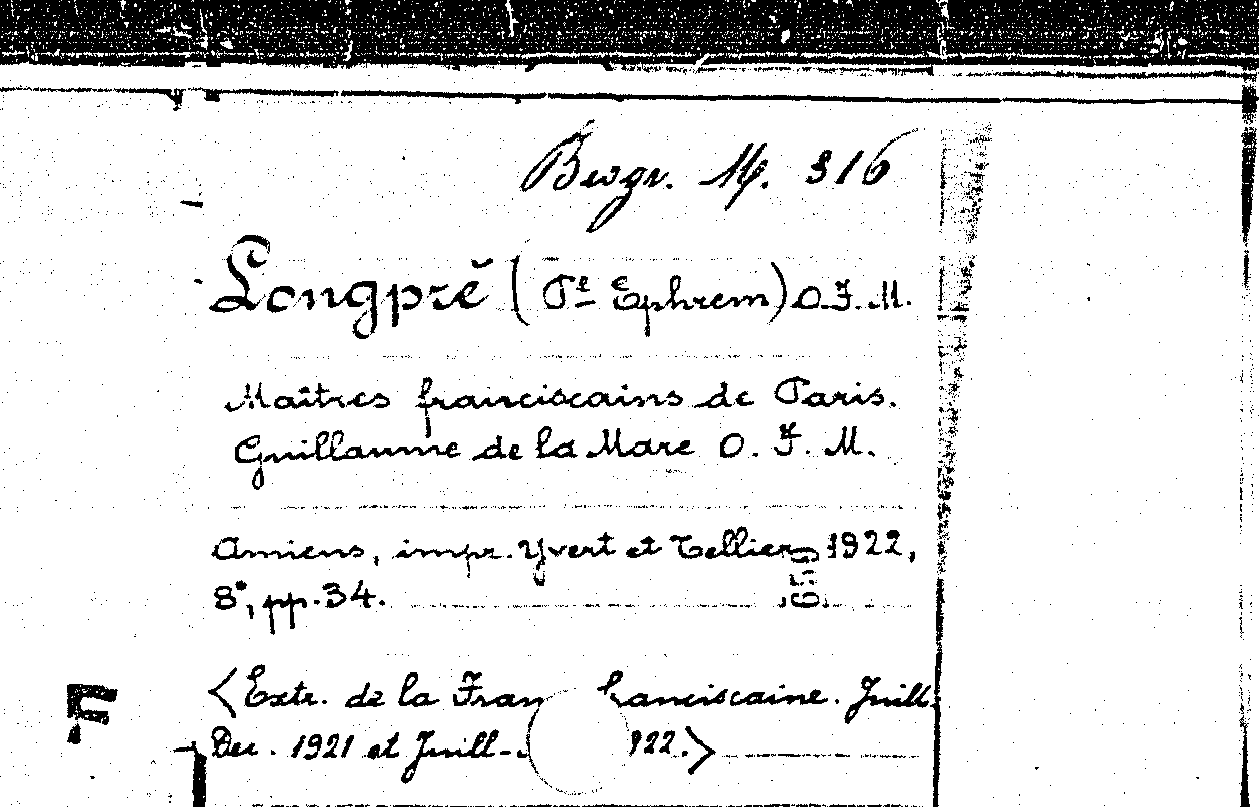 Biogr. M. 316
Longpré (Pe Ephrem) O. F. M.
Maîtres franciscains de Paris.
Guillaume de la Mare O. F. M.
Amiens, impr. Yvert et Tellier, 1922,
8°, pp. 34.
<Extr. de la Fran franciscaine. Juill.
Dec. 1921 et Juill- 922.>
F